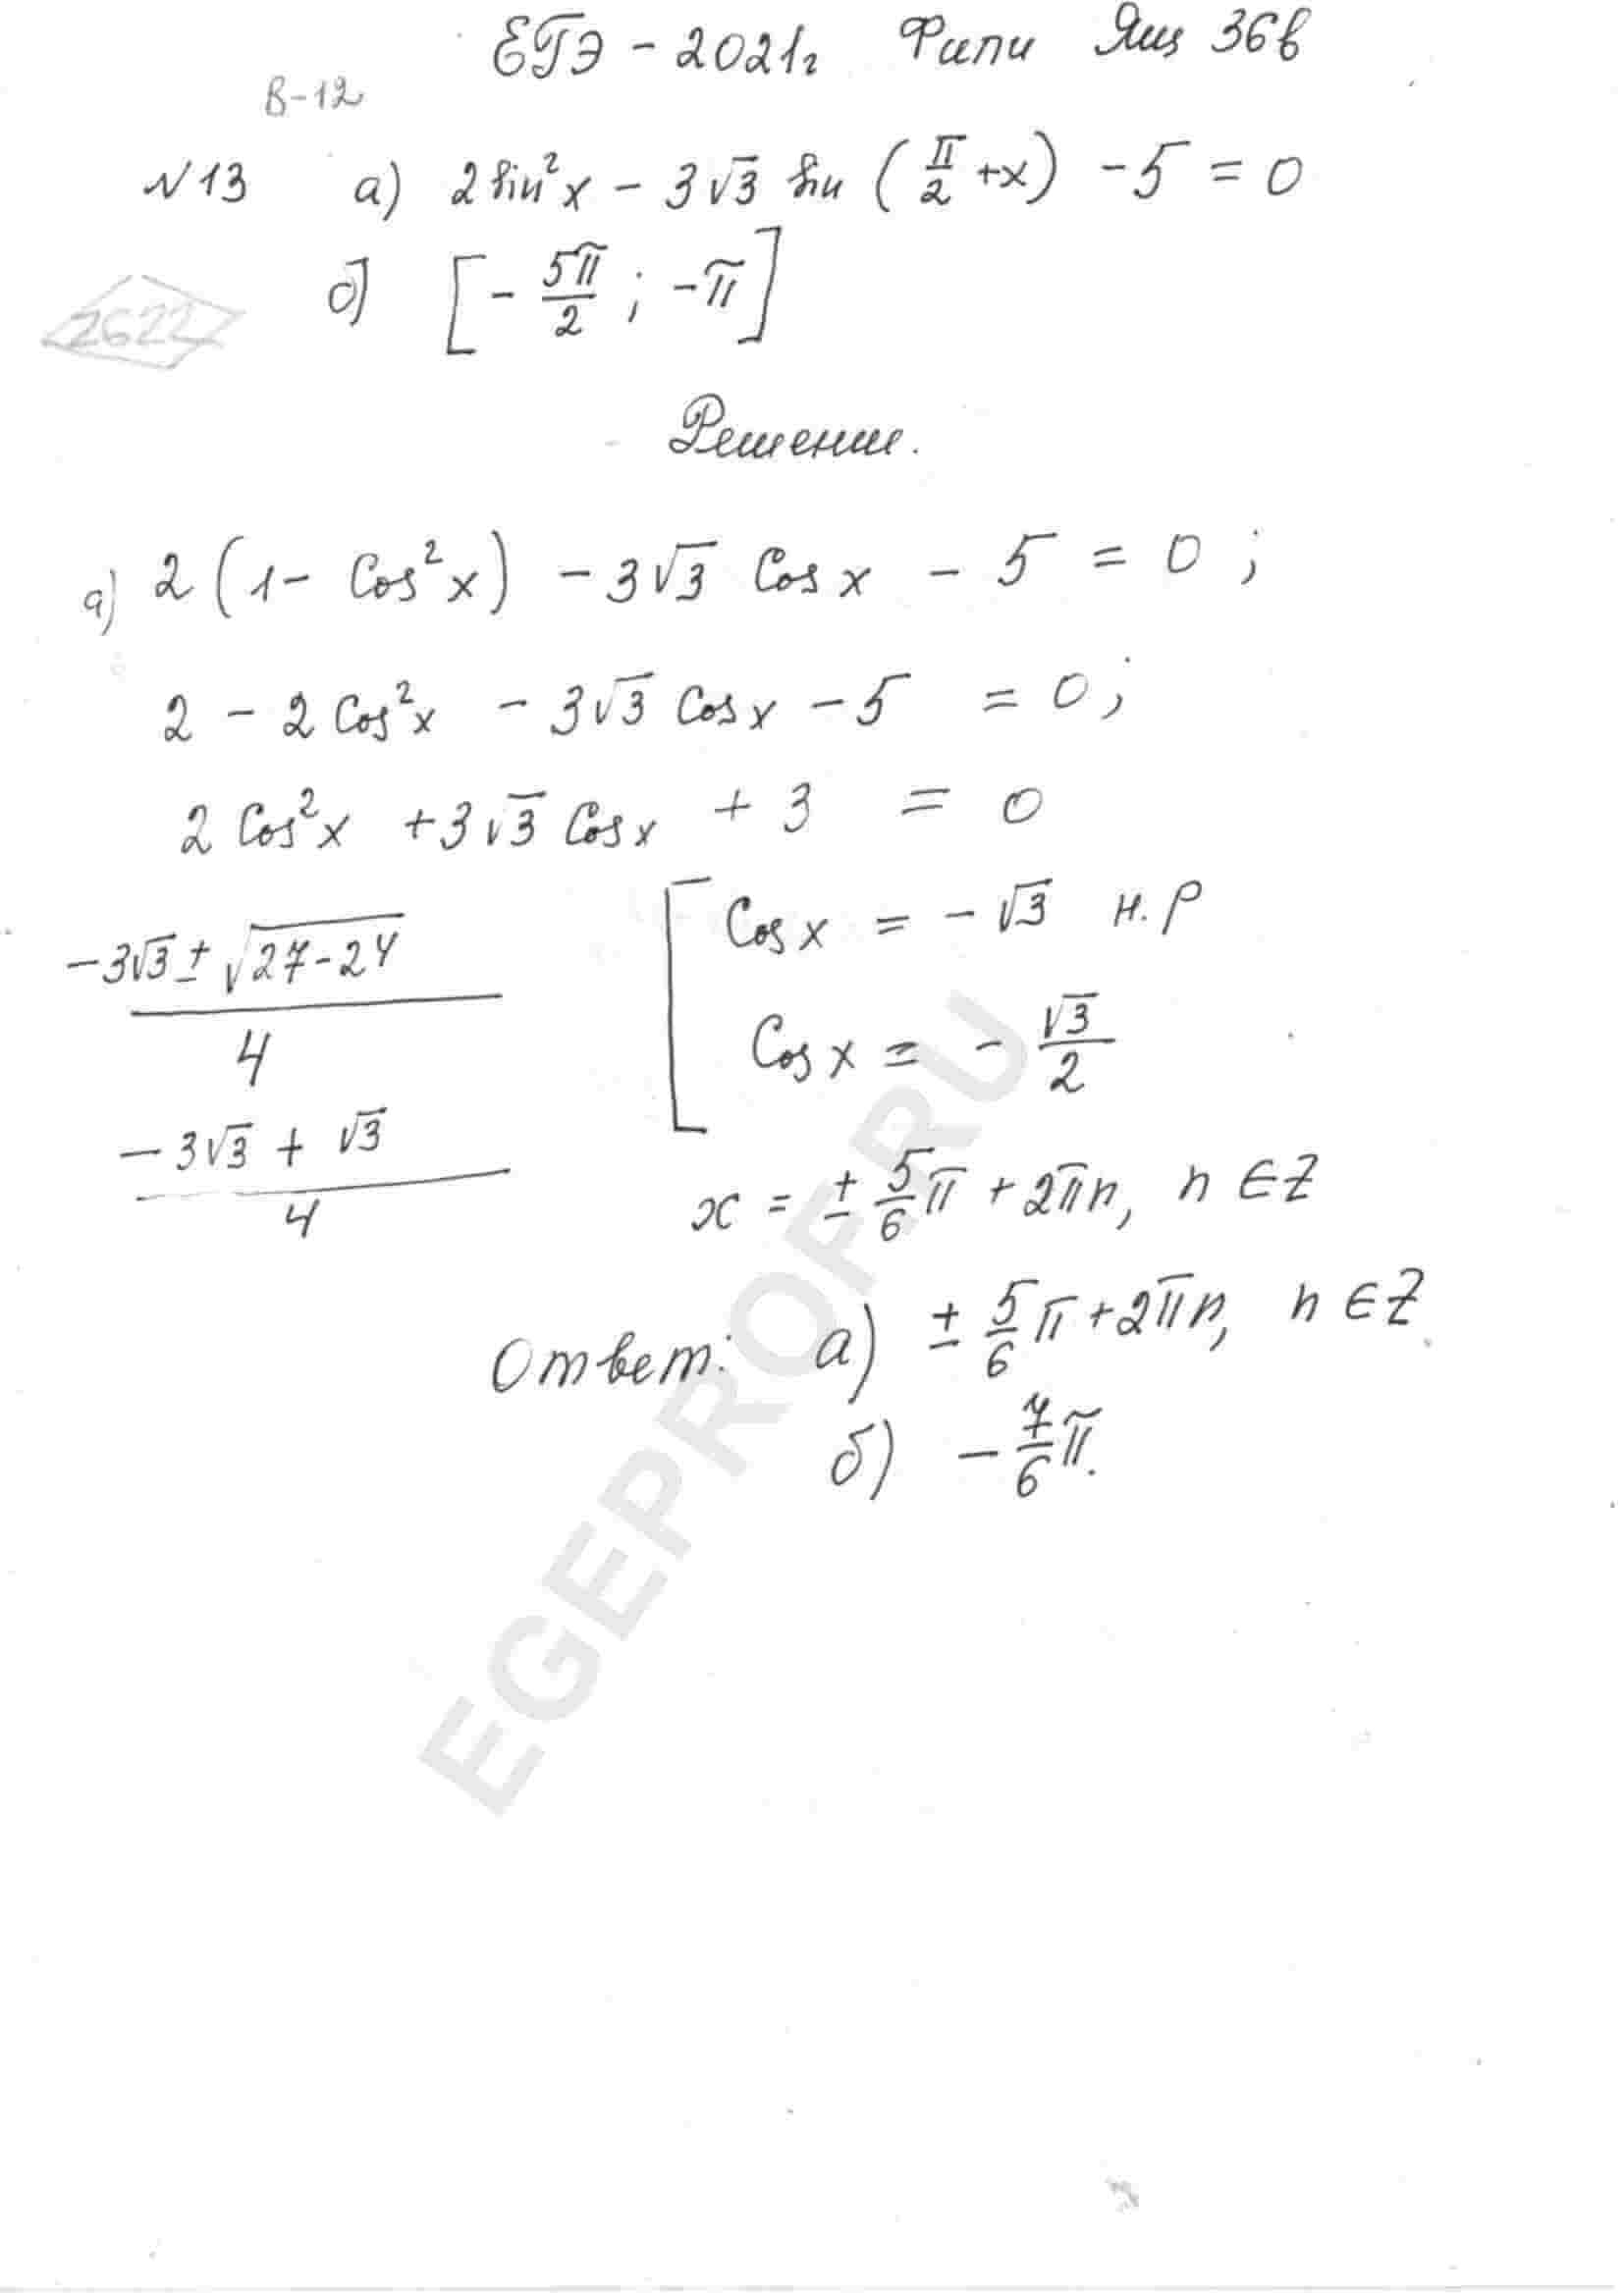 ЕГЭ - 2021г Фипи Ящ 36в
В-12
№13 а) 2 sin²x - 3√3 sin (π/2 + x) - 5 = 0
б) [-5π/2 ; -π]
2622
Решение.
а) 2 (1 - Cos²x) - 3√3 Cos x - 5 = 0 ;
2 - 2 Cos²x - 3√3 Cos x - 5 = 0 ;
2 Cos²x + 3√3 Cos x + 3 = 0
(-3√3 ± √(27-24))/4
[ Cos x = -√3 н.р
Cos x = -√3/2
(-3√3 + √3)/4
x = ± 5/6 π + 2πn, n ∈ Z
Ответ: а) ± 5/6 π + 2πn, n ∈ Z
б) - 7/6 π.
EGEPROF.RU